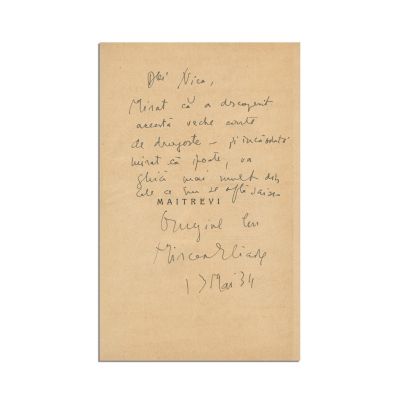 Nica,
Mirat că a descoperit
această veche carte
de dragoste – și încăodată
mirat că poate, va
ghici mai mult decât
cele ce se află scrise
MAITREYI
Mircea Eliade
17 Mai 34